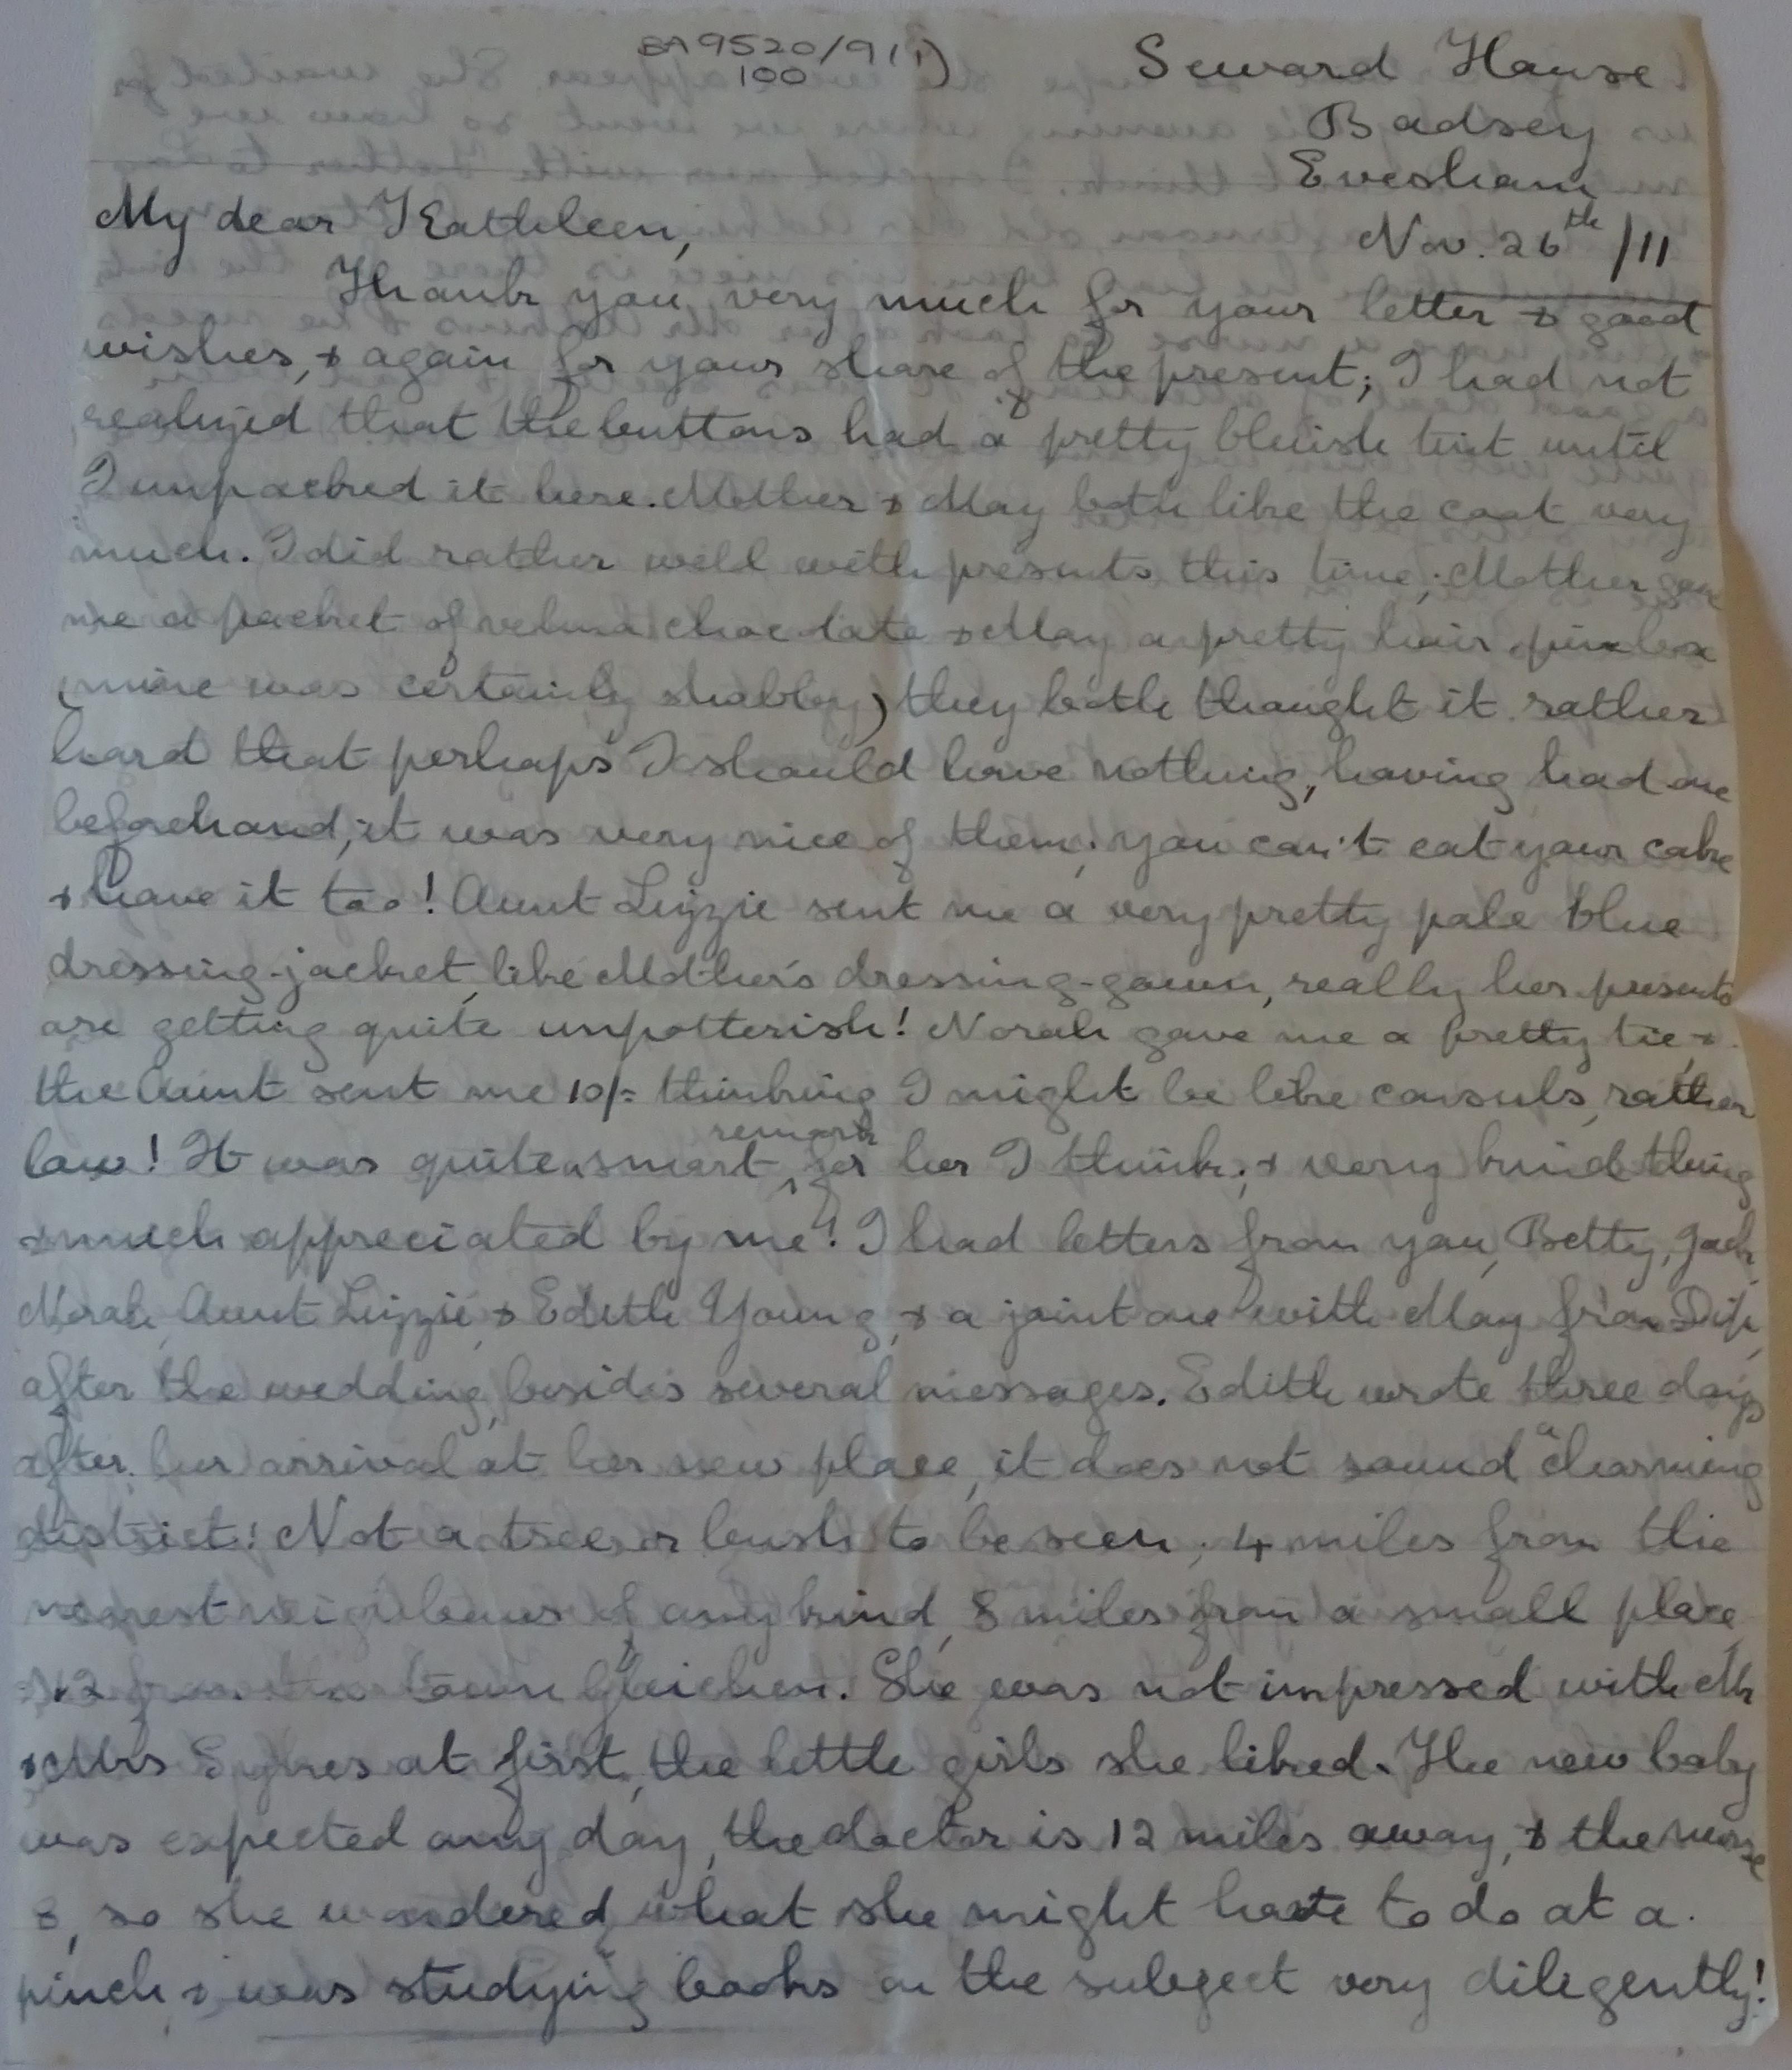 BA 9520/9 (1)
100
Seward House
Badsey
Evesham
Nov. 26th /11
My dear Kathleen,
Thank you very much for your letter & good
wishes, & again for your share of the present; I had not
realized that the buttons had a pretty bluish tint until
I unpacked it here. Mother & May both like the coat very
much. I did rather well with presents this time; Mother gave
me a packet of velma chocolate & May a pretty hair pin box
(mine was certainly shabby) they both thought it rather
hard that perhaps I should have nothing, having had one
beforehand; it was very nice of them; you can't eat your cake
& have it too! Aunt Lizzie sent me a very pretty pale blue
dressing-jacket, like Mother's dressing-gown, really her presents
are getting quite unpotterish! Norah gave me a pretty tie &
the Aunt sent me 10/= thinking I might be like consuls, rather
low! It was quite a smart remark for her I think; & very kind thing
& much appreciated by me! I had letters from you, Betty, Jack,
Norah, Aunt Lizzie & Edith Young, & a joint one with May from
after the wedding, besides several messages. Edith wrote three days
after her arrival at her new place, it does not sound a charming
district! Not a tree or bush to be seen; 4 miles from the
nearest neighbours of any kind, 8 miles from a small place,
& 12 from the town Gleichen. She was not impressed with Mr
& Mrs Sykes at first, the little girls she liked. The new baby
was expected any day, the doctor is 12 miles away, & the nurse
8, so she wondered what she might have to do at a
pinch & was studying books on the subject very diligently!